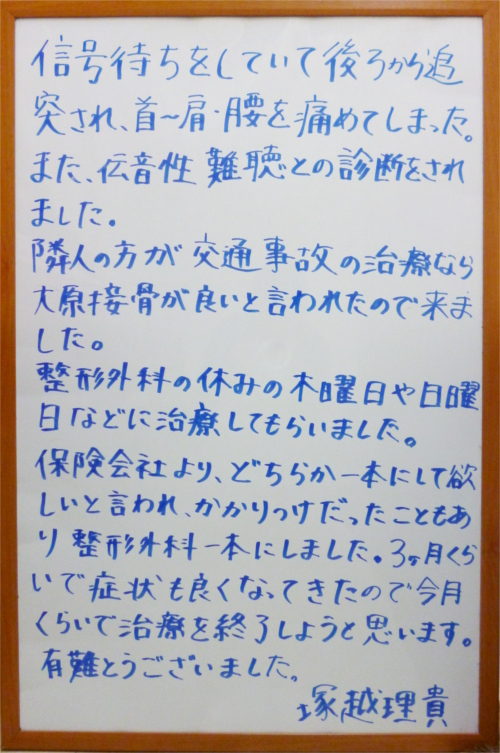 信号待ちをしていて後ろから追
突され、首〜肩・腰を痛めてしまった。
また、伝音性難聴との診断をされ
ました。
隣人の方が交通事故の治療なら
大原接骨が良いと言われたので来ま
した。
整形外科の休みの木曜日や日曜
日などに治療してもらいました。
保険会社より、どちらか一本にして欲
しいと言われ、かかりつけだったこともあ
り整形外科一本にしました。3ヶ月くら
いで症状も良くなってきたので今月
くらいで治療を終了しようと思います。
有難とうございました。
塚越理貴